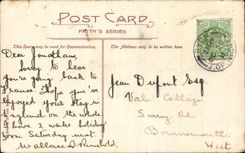 POST CARD
FRITH'S SERIES
This Space may be used for Communication.
The Address only to be Written here.
Dear
Sorry to hear
you're going back to
France. Hope you've
enjoyed your stay in
England on the whole
& have a nice holiday
love Saturday next
Wallace D.
Jean Dufort Esq
Val Cottage
Surrey Rd
Bournemouth
West